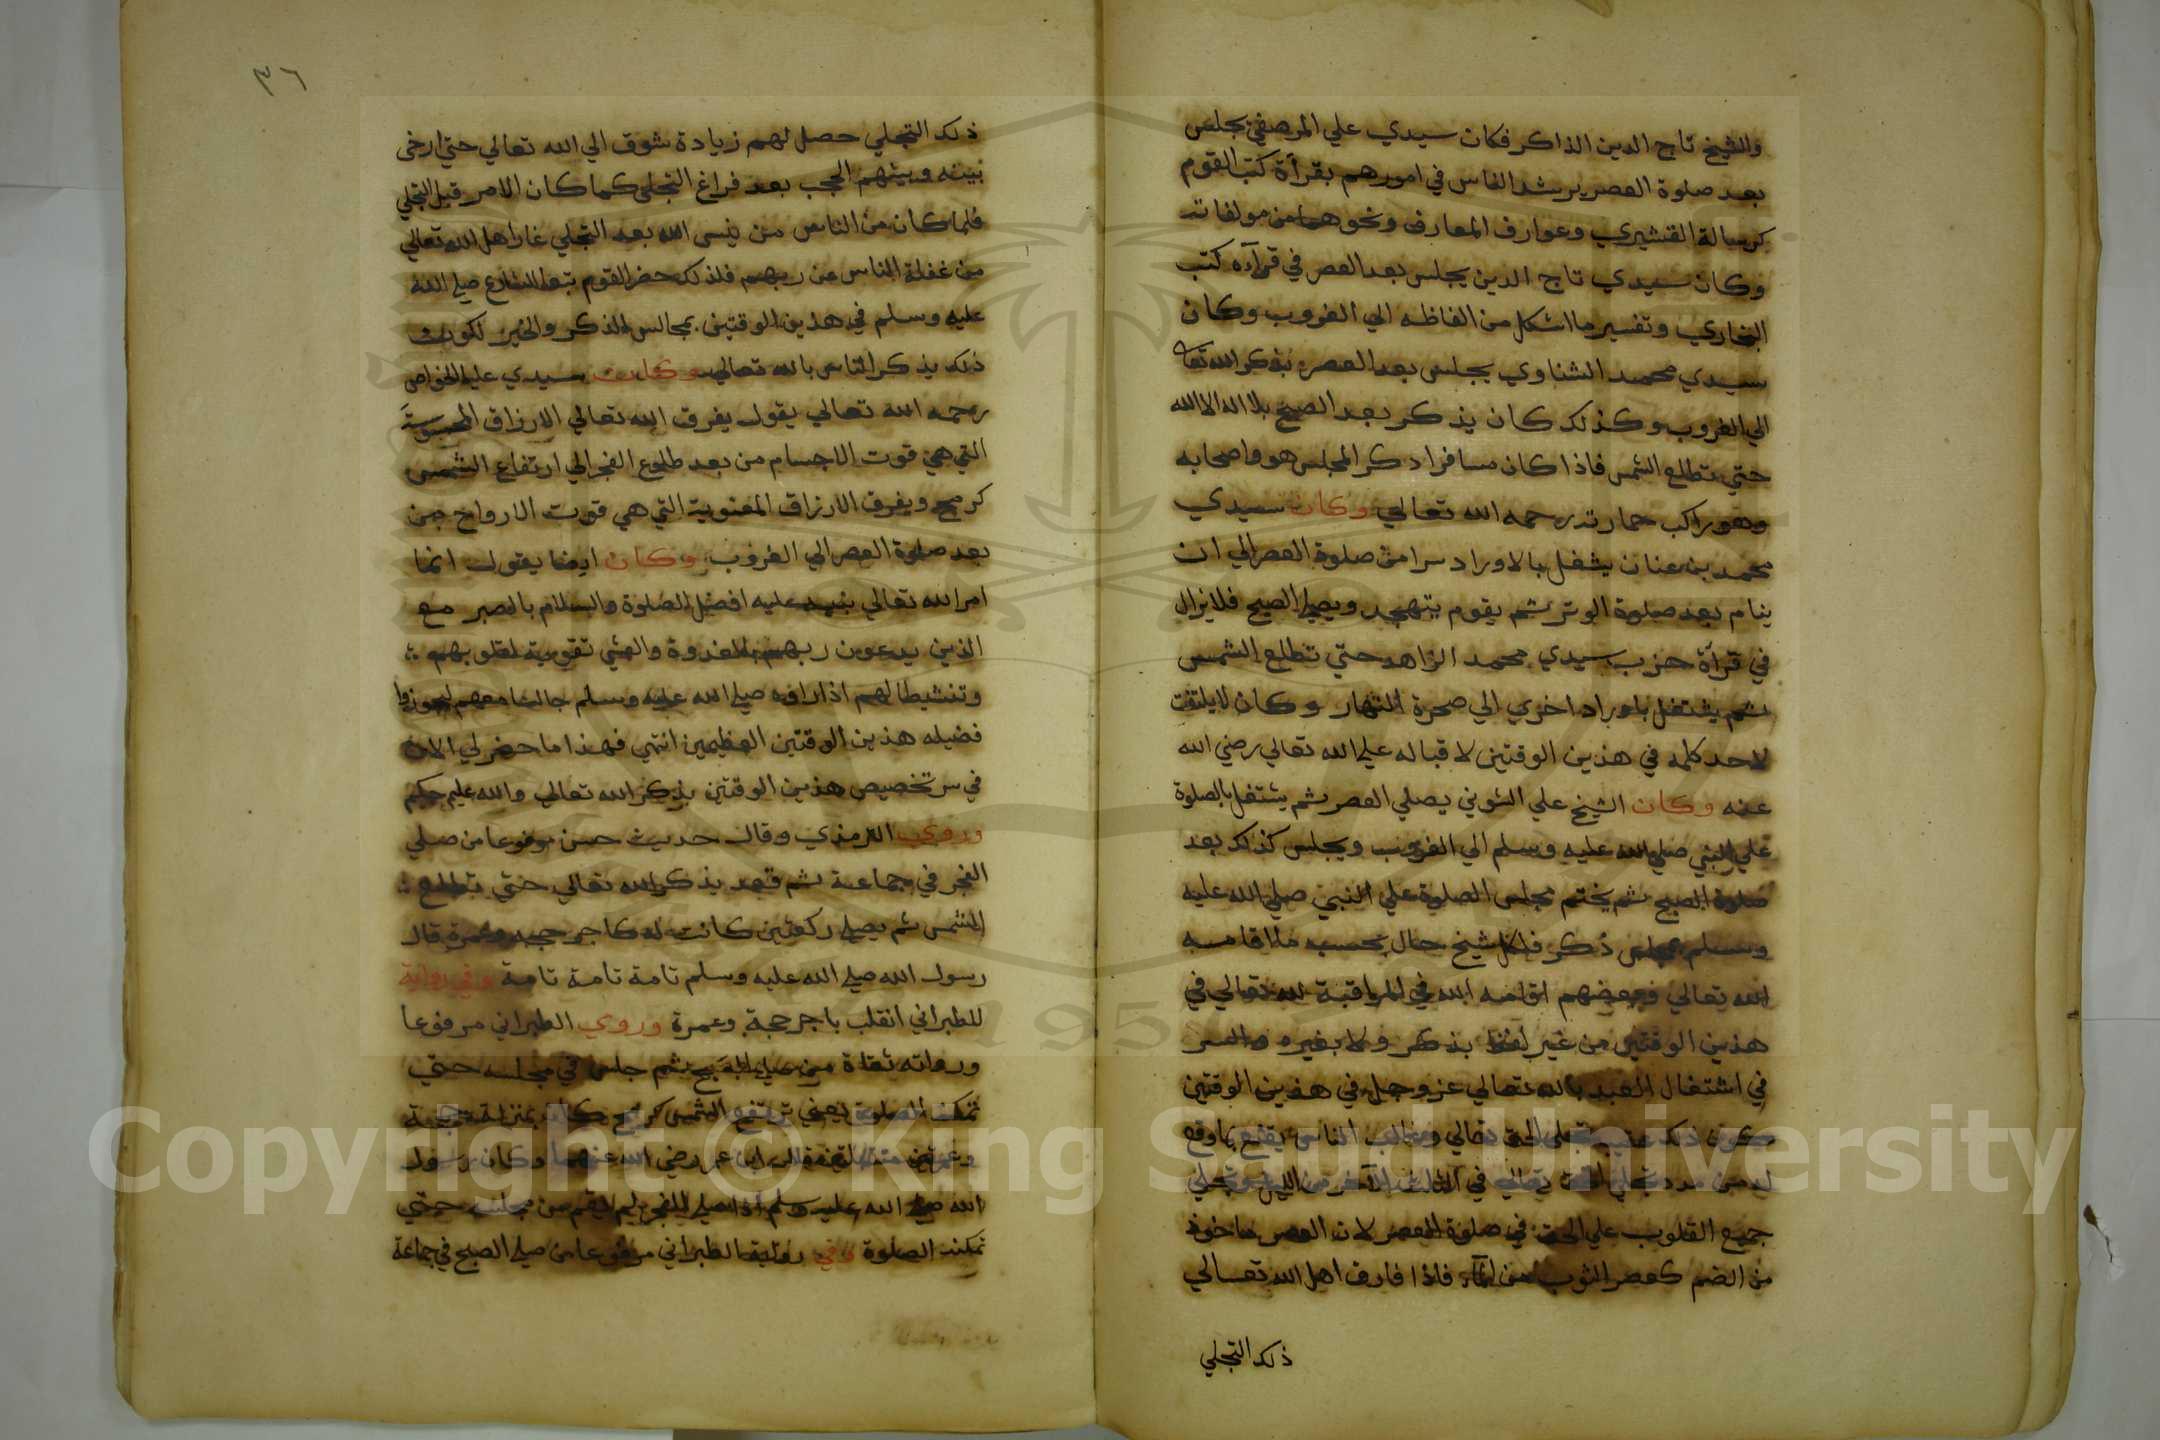 والشيخ تاج الدين الذاكر فكان سيدي علي المرصفي يجلس
بعد صلوة العصر يرشد الناس في امورهم بقرأة كتب القوم
كرسالة القشيري وعوارف المعارف ونحوهما من مولفاته
وكان سيدي تاج الدين يجلس بعد العصر في قرآءه كتب
البخاري وتفسير ما اشكل من الفاظه الي الغروب وكان
سيدي محمد الشناوي يجلس بعد العصر يذكر الله تعا
الي الغروب وكذلك كان يذكر بعد الصبح بلا اله الا الله
حتي تطلع الشمس فاذا كان مسافرا ذكر المجلس هو واصحابه
وهو راكب حمارته رحمه الله تعالي وكان سيدي
محمد بن عنان يشغل بالاوراد سرا من صلوة العصر الي ان
ينام بعد صلوة الوتر ثم يقوم يتهجد ويصلي الصبح فلا يزال
في قرآة حزب سيدي محمد الزاهد حتي تطلع الشمس
ثم يشتغل باوراد اخري الي ضحوة النهار وكان لا يلتفت
لاحد كلمه في هذين الوقتين لاقباله علي الله تعالي رضي الله
عنه وكان الشيخ علي الشوني يصلي العصر ثم يشتغل بالصلوة
علي النبي صلي الله عليه وسلم الي الغروب ويجلس كذلك بعد
صلوة الصبح ثم يختم مجلس الصلوة علي النبي صلي الله عليه
وسلم بمجلس ذكر فلكل شيخ حال بحسب ما اقامه
الله تعالي فبعضهم اقامه الله في المراقبة لله تعالي في
هذين الوقتين من غير لفظ بذكر ولا بغيره والسر
في اشتغال العبد بالله تعالي عز وجل في هذين الوقتين
كون ذلك عقيب تجلي الحق تعالي وغالب الناس يقنع بما وقع
له من مدد تجلي الحق تعالي في الثلث الآخر من الليل وتجلي
جميع القلوب علي الحق في صلوة العصر لان العصر ماخوذ
من الضم كعصر الثوب من المآء فاذا فارق اهل الله تعالي
ذلك التجلي
٣٦
ذلك التجلي حصل لهم زيادة شوق الي الله تعالي حتي ارخي
بينه وبينهم الحجب بعد فراغ التجلي كما كان الامر قبل التجلي
فلما كان من الناس من ينسي الله بعد التجلي غار اهل الله تعالي
من غفلة الناس عن ربهم فلذلك حض القوم تبعا للشارع صلي الله
عليه وسلم في هذين الوقتين بمجالس الذكر والخير لكون
ذلك يذكر الناس بالله تعالي وكان سيدي علي الخواص
رحمه الله تعالي يقول يفرق الله تعالي الارزاق المحسوسة
التي هي قوت الاجسام من بعد طلوع الفجر الي ارتفاع الشمس
كرمح ويفرق الارزاق المعنوية التي هي قوت الارواح من
بعد صلوة العصر الي الغروب وكان ايضا يقول انما
امر الله تعالي نبيه عليه افضل الصلوة والسلام بالصبر مع
الذين يدعون ربهم بالغدوة والعشي تقوية لقلوبهم
وتنشيطا لهم اذا راوه صلي الله عليه وسلم جالسا معهم ليحوزوا
فضيله هذين الوقتين العظيمين انتهي فهذا ما حضر لي الان
في سر تخصيص هذين الوقتين بذكر الله تعالي والله عليم حكيم
وروي الترمذي وقال حديث حسن مرفوعا من صلي
الفجر في جماعة ثم قعد يذكر الله تعالي حتي تطلع
الشمس ثم يصلي ركعتين كانت له كاجر حجه وعمرة قال
رسول الله صلي الله عليه وسلم تامة تامة تامة وفي رواية
للطبراني انقلب باجر حجة وعمرة وروي الطبراني مرفوعا
ورواته ثقاة من صلي الصبح ثم جلس في مجلسه حتي
تمكنه الصلوة يعني ترتفع الشمس كرمح كان بمنزلة حجة
وعمرة متقبلتين فقال ابن عمر رضي الله عنهما وكان رسول
الله صلي الله عليه وسلم اذا صلي الفجر لم يقم من مجلسه حتي
تمكنه الصلوة وفي رواية للطبراني مرفوعا من صلي الصبح في جماعة
Copyright © King Saud University
1957